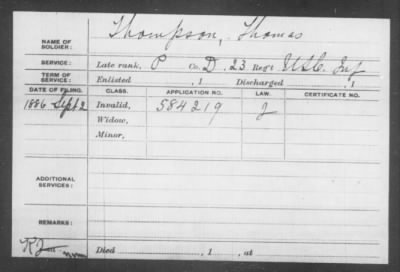 NAME OF SOLDIER: Thompson, Thomas
SERVICE: Late rank, P Co. D, 23 Reg't U.S.C. Inf
TERM OF SERVICE: Enlisted , 1 Discharged , 1
DATE OF FILING. CLASS. APPLICATION NO. LAW. CERTIFICATE NO.
1886 Sept 2 Invalid, 584219 J
Widow,
Minor,
ADDITIONAL SERVICES:
REMARKS:
Died , 1 , at